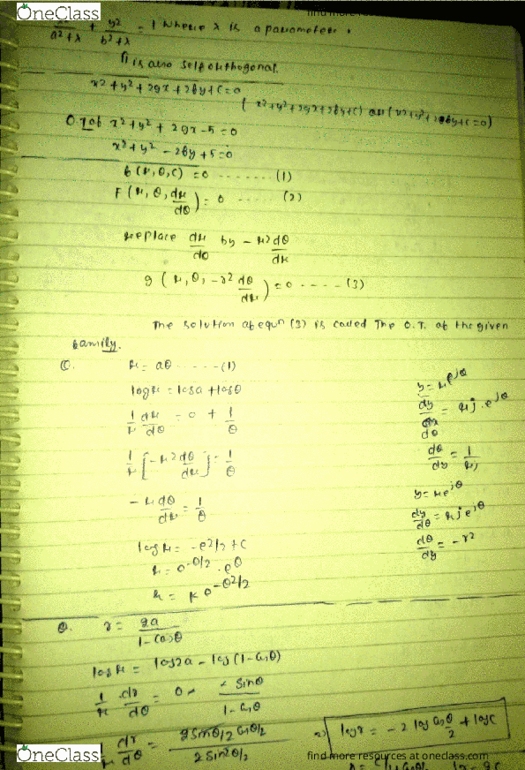 OneClass
find more resources at oneclass.com
a²+λ + y²/b²+λ = 1 where λ is a parameter.
is also self orthogonal.
x²+y²+2gx+2fy+c=0
O.T of x²+y²+2gx-5=0
x²+y²-2fy+5=0
f(r,θ,c)=0 ...... (1)
F(r,θ,dr/dθ)=0 .... (2)
Replace dr/dθ by -r²dθ/dr
g(r,θ,-r²dθ/dr)=0 .... (3)
The solution of equn (3) is called The O.T. of the given
family.
Q. r = aθ ..... (1)
log r = log a + log θ
1/r dr/dθ = 0 + 1/θ
1/r [-r²dθ/dr] = 1/θ
-r dθ/dr = 1/θ
log r = -θ²/2 + c
r = k e^-θ²/2
y = re^jθ
dy/dθ = rj.e^jθ
dθ/dy = 1/rj
y = re^jθ
dy/dθ = rje^jθ
dθ/dy = -r²
Q. r = 2a/1-cosθ
log r = log2a - log(1-cosθ)
1/r dr/dθ = 0 - sinθ/1-cosθ
dr/dθ = 2sinθ/2 cosθ/2 / 2sin²θ/2
log r = -2 log cosθ/2 + log c
OneClass
find more resources at oneclass.com